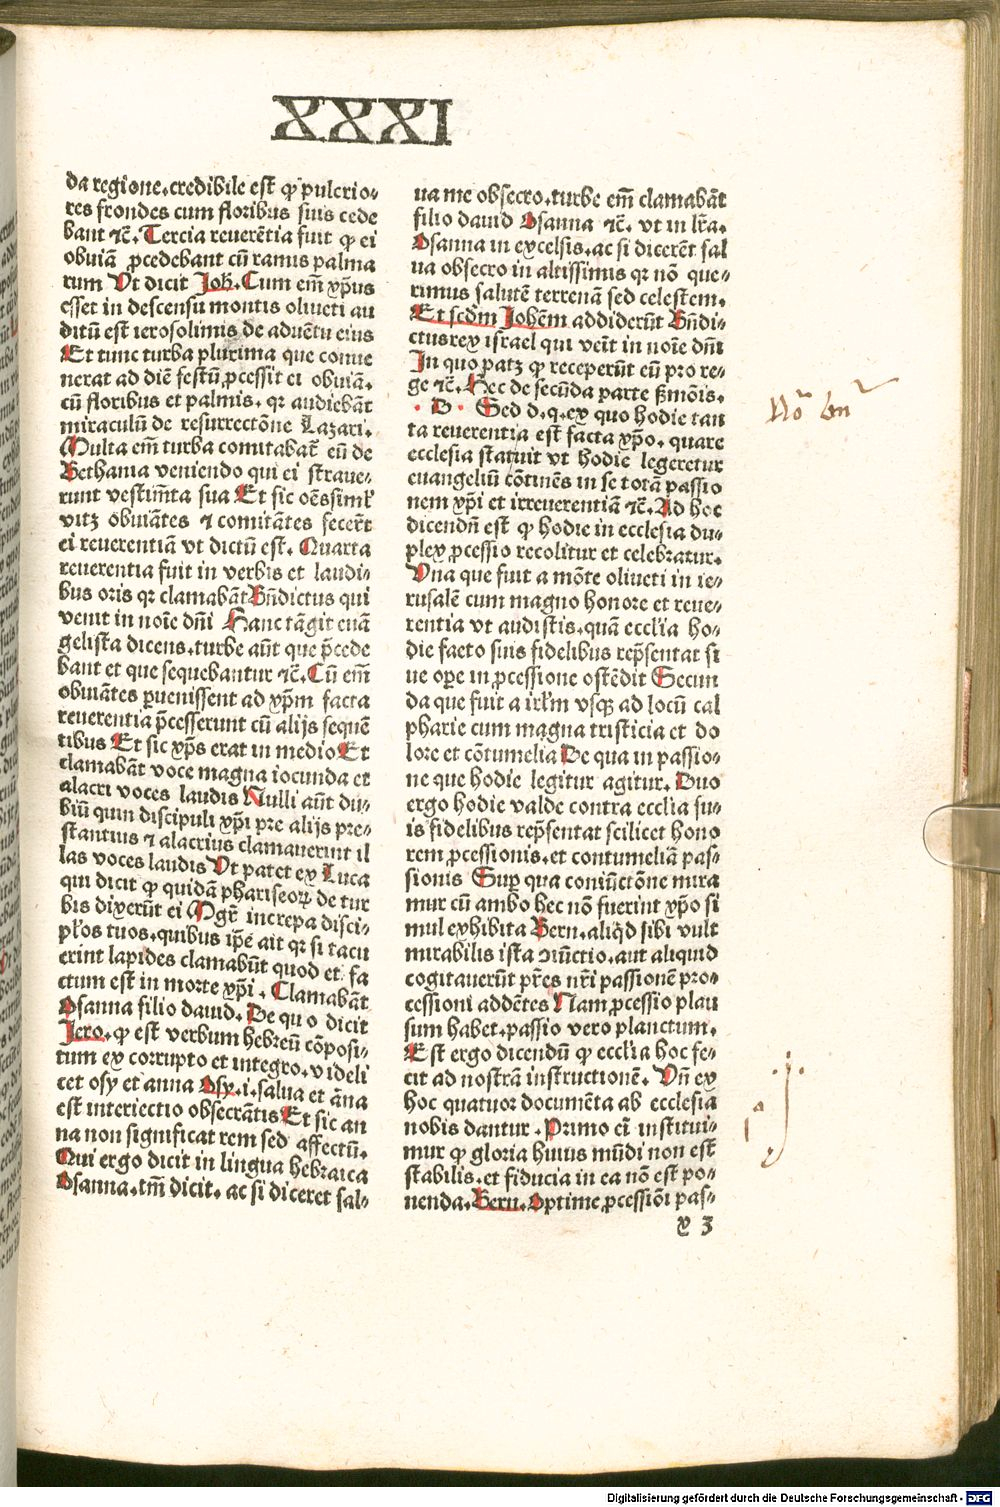 XXXI
da regione.credibile est ꝙ pulcrio-
res frondes cum floribus suis cede
bant ⁊c̄. Tercia reuerētia fuit ꝙ ei
obuiā ꝓcedebant cū ramis palma
rum Ut dicit Joh̄. Cum em̄ xp̄us
esset in descensu montis oliueti au
ditū est ierosolimis de aduētu eius
Et tunc turba plurima que conue
nerat ad diē festū ꝓcessit ei obuiā.
cū floribus et palmis. qr audiebāt
miraculū de resurrectōne Lazari.
Multa em̄ turba comitabat̄ eū de
Bethania veniendo qui ei straue-
runt vestim̄ta sua Et sic oēs simł
vitꝫ obuiātes ⁊ comitātes fecer̄t
ei reuerentiā vt dictū est. Quarta
reuerentia fuit in verbis et laudi-
bus oris qr clamabāt Bn̄dictus qui
venit in noīe dn̄i Hanc tāgit euā
gelista dicens.turbe aūt que p̄cede
bant et que sequebantur ⁊c̄. Cū em̄
obuiātes ꝑuenissent ad xp̄m facta
reuerentia p̄cesserunt cū alijs sequē
tibus Et sic xp̄s erat in medio Et
clamabāt voce magna iocunda et
alacri voces laudis Nulli aūt du-
biū quin discipuli xp̄i pre alijs pre-
stantius ⁊ alacrius clamauerint il
las voces laudis Ut patet ex Luca
qui dicit ꝙ quidā phariseoꝝ de tur
bis dixerūt ei Mgr̄ increpa disci-
płos tuos.quibus ip̄e ait qr si tacu
erint lapides clamabūt quod et fa
ctum est in morte xp̄i. Clamabāt
Osanna filio dauid. De quo dicit
Jero.ꝙ est verbum hebreū cōposi-
tum ex corrupto et integro.videli
cet osy et anna Osy.i.salua et āna
est interiectio obsecrātis Et sic an
na non significat rem sed affectū.
Qui ergo dicit in lingua hebraica
Osanna.tm̄ dicit. ac si diceret sal-
ua me obsecro.turbe em̄ clamabāt
filio dauid Osanna ⁊c̄. vt in lr̄a.
Osanna in excelsis.ac si dicerēt sal
ua obsecro in altissimis qr nō que-
rimus salutē terrenā sed celestem.
Et scd̄m Joh̄em addiderūt Bn̄di-
ctus rex israel qui veīt in noīe dn̄i
In quo patꝫ ꝙ receperūt eū pro re-
ge ⁊c̄. Hec de secūda parte ßmōis.
. D . Sed d.q.ex quo hodie tan
ta reuerentia est facta xp̄o. quare
ecclesia statuit vt hodie legeretur
euangeliū cōtinēs in se totā passio
nem xp̄i et irreuerentiā ⁊c̄. Ad hoc
dicendū est ꝙ hodie in ecclesia du-
plex ꝓcessio recolitur et celebratur.
Una que fuit a mōte oliueti in ie-
rusalē cum magno honore et reue-
rentia vt audistis.quā ecclīa ho-
die facto suis fidelibus rep̄sentat si
ue oꝑe in ꝓcessione ostēdit Secun
da que fuit a irłm vsqꝫ ad locū cal
pharie cum magna tristicia et do
lore et cōtumelia De qua in passio-
ne que hodie legitur agitur. Duo
ergo hodie valde contra ecclīa su-
is fidelibus rep̄sentat scilicet hono
rem ꝓcessionis.et contumeliā pas-
sionis Suꝑ qua coniūctōne mira
mur cū ambo hec nō fuerint xp̄o si
mul exhibita Bern.aliqd̄ sibi vult
mirabilis ista ↄiūctio.aut aliquid
cogitauerūt pr̄es nr̄i passionē pro-
cessioni addētes Nam ꝓcessio plau
sum habet.passio vero planctum.
Est ergo dicendū ꝙ ecclīa hoc fe-
cit ad nostrā instructionē. Un̄ ex
hoc quatuor documēta ab ecclesia
nobis dantur. Primo eī institui-
mur ꝙ gloria huius mūdi non est
stabilis.et fiducia in ea nō est po-
nenda.Bern. Optime ꝓcessiōi pas-
x 3
No᷈ bn̄
.j.
Digitalisierung gefördert durch die Deutsche Forschungsgemeinschaft - DFG